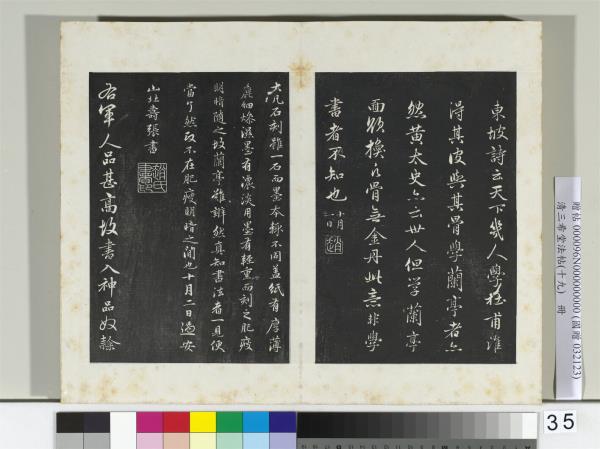 東坡詩云天下幾人學杜甫誰
得其皮與其骨學蘭亭者亦
然黃太史亦云世人但學蘭亭
面欲換凡骨無金丹此意非學
書者不知也 十月
一日
大凡石刻雖一石而墨本輒不同蓋紙有厚薄
麤細燥濕墨有濃淡用墨有輕重而刻之肥瘦
明暗隨之故蘭亭難辨然真知書法者一見便
當了然政不在肥瘦明暗之間也十月二日過安
山北壽張書
趙氏
書印
右軍人品甚高故書入神品奴隸
贈帖 000096N000000000 (國贈 032123)
清三希堂法帖(十九) 冊
35